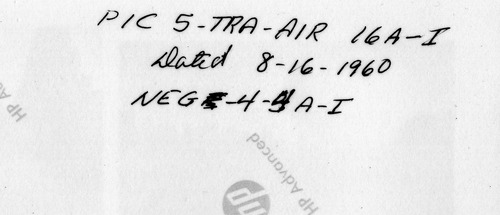 PIC 5-TRA-AIR 16A-I
Dated 8-16-1960
NEG -4-4A-I
HP Adv
HP Advanced
hp